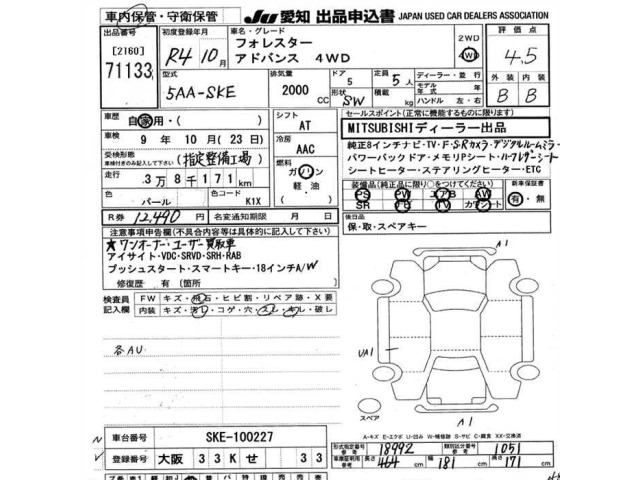 車内保管・守衛保管
JU愛知 出品申込書 JAPAN USED CAR DEALERS ASSOCIATION
出品番号
[2160]
71133
初度登録年月
R4年 10月
車名・グレード
フォレスター
アドバンス 4WD
2WD
4WD
評価点
4.5
型式
5AA-SKE
排気量
2000 CC
ドア
5
形状
SW
定員
5人
積載
kg
ディーラー・並行
モデル年式 年
ハンドル 左・右
外装 内装
B B
車歴
自家用・( )
車検
9年 10月(23日)
受検形態
車検付きのみ記入して下さい
(指定整備工場)
走行
3万8千171km
色
パール
色コード
K1X
R券 12,490円
名変通知期限 月 日
シフト
AT
冷房
AAC
燃料
ガソリン
軽・油
( )
セールスポイント(正常に機能するものに限ります)
MITSUBISHIディーラー出品
純正8インチナビ・TV・F・S・Rカメラ・デジタルルームミラー
パワーバックドア・メモリPシート・ハーフレザーシート
シートヒーター・ステアリングヒーター・ETC
装備品(純正品に限り○をつけてください)
PS PW エアB AW
SR ナビ TV カワシート
新車保証書
有・無
後日品
保・取・スペアキー
注意事項申告欄(不具合内容等は具体的に記入して下さい)
★ワンオーナー・ユーザー買取車
アイサイト・VDC・SRVD・SRH・RAB
プッシュスタート・スマートキー・18インチA/W
修復歴 有 [箇所]
検査員記入欄
FW キズ・飛石・ヒビ割・リペア跡・X要
内装 キズ・汚レ・コゲ・穴・スレ・キレ・破レ
各AU
A1
UA1
A1
スペア
A-キズ E-エクボ U-凹み W-補修跡 S-サビ C-腐食 XX-交換済
車台番号 SKE-100227
登録番号 大阪 33K せ 33
形式指定番号 参考 18992
類別区分番号 参考 1051
車庫証明用 参考 長さ 464 幅 181 高さ 171